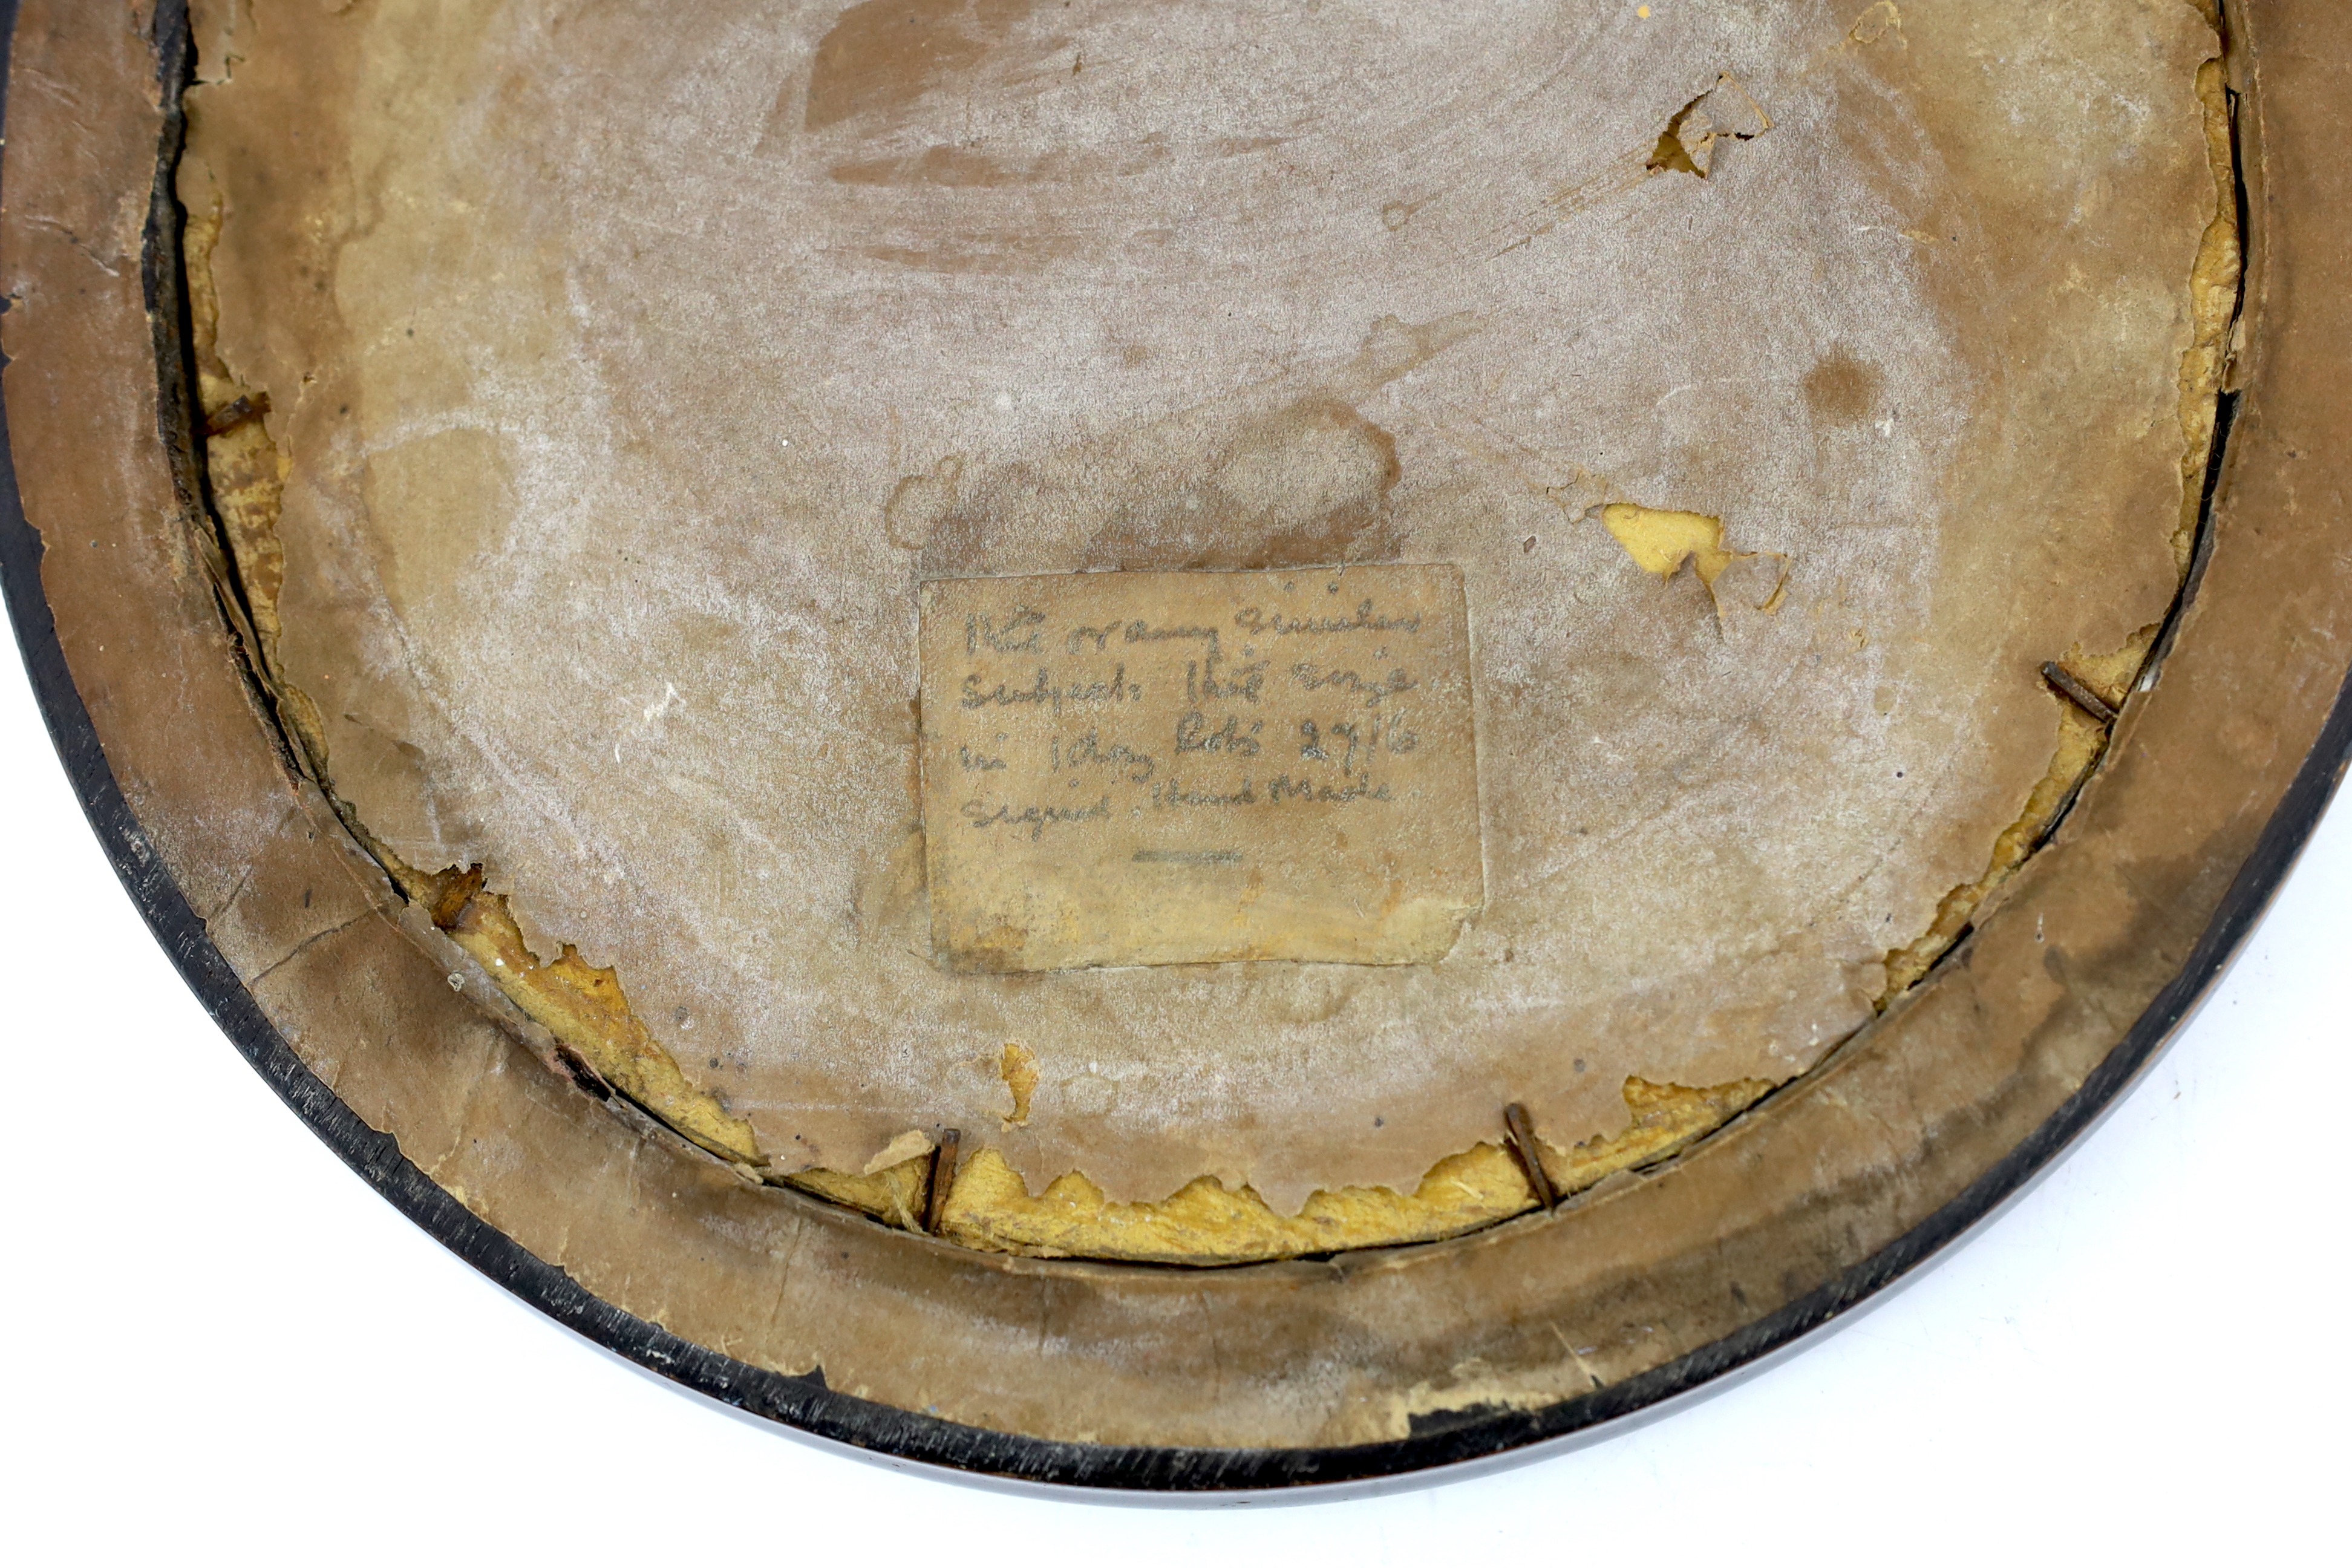 this or any similar
subjects this size
in 1 doz lots 27/6
signed. Hand Made.